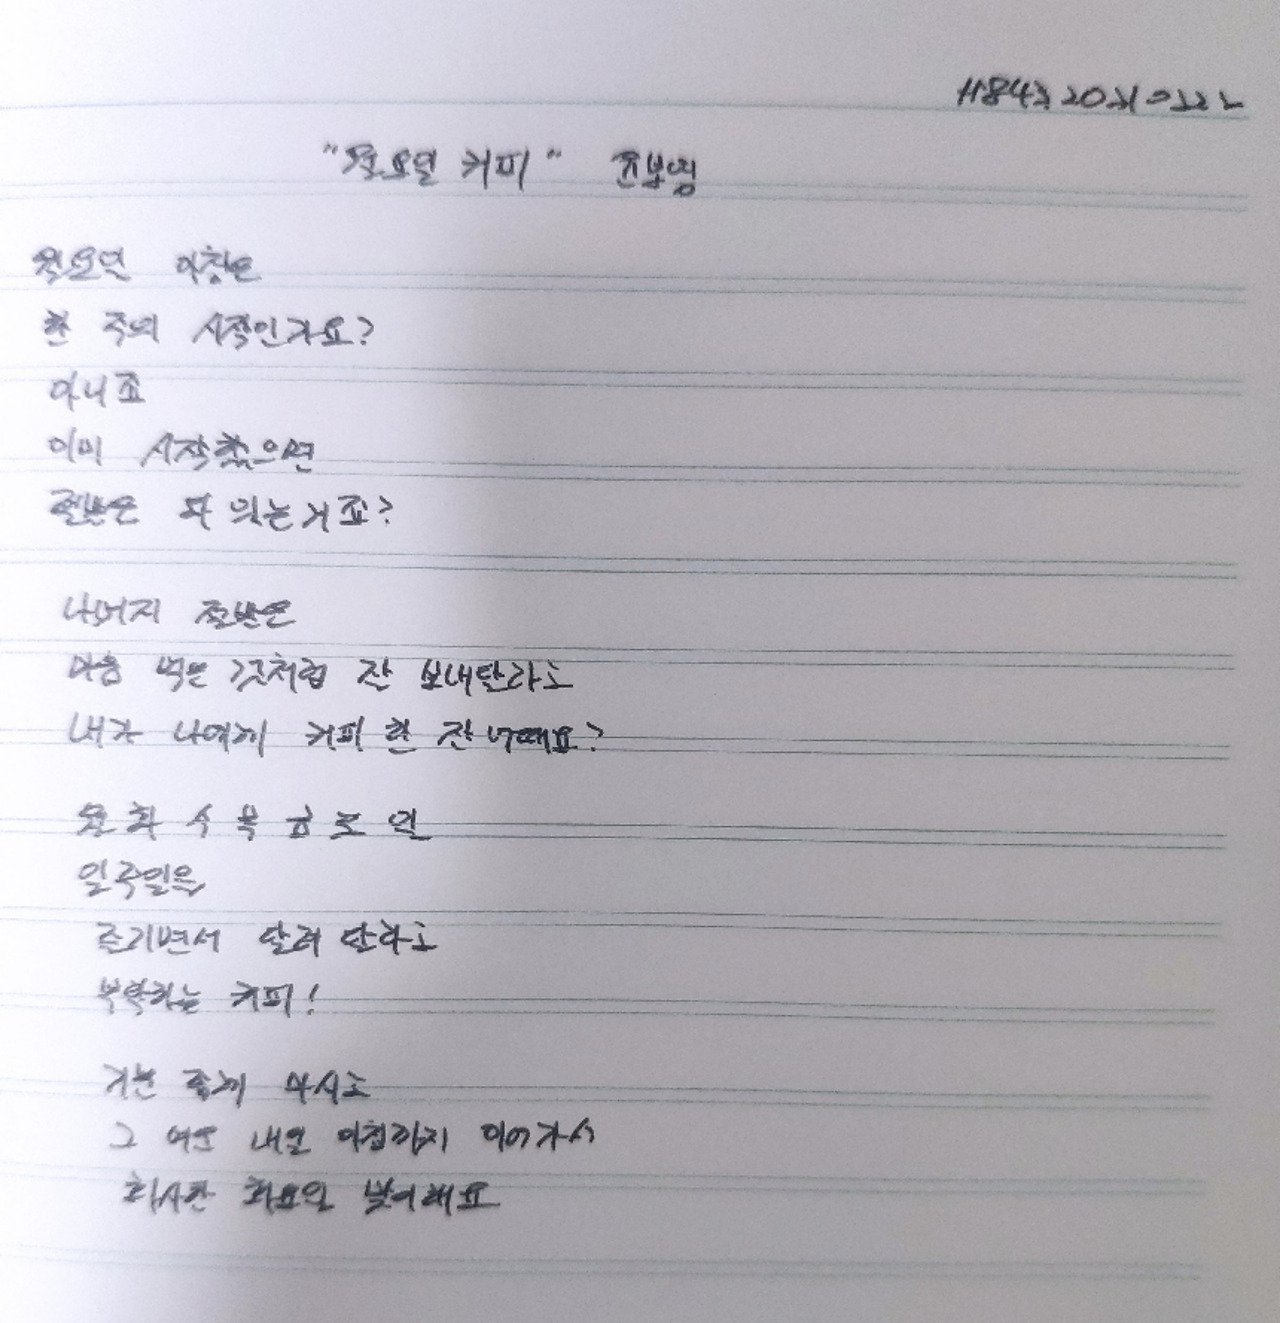 "월요일 커피" 윤보영
월요일 아침은
한 주의 시작인가요?
아니죠
이미 시작했으면
절반은 와 있는거죠?
나머지 절반은
마음 먹은 것처럼 잘 보내달라고
내가 나에게 커피 한 잔 어때요?
월 화 수 목 금 토 일
일주일을
즐기면서 달려 달라고
부탁하는 커피!
기분 좋게 마시고
그 여운 내일 아침까지 이어가서
화사한 화요일 맞이해요